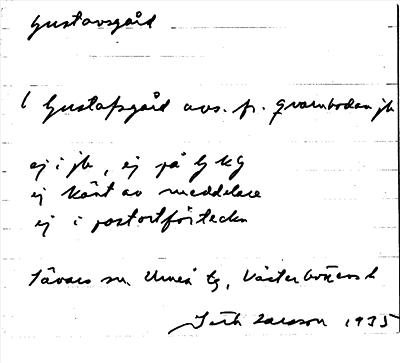 Gustavsgård
( Gustafsgård avs. fr. Qvarnbodan jb
ej i jb, ej på GKG
ej känt av meddelare
ej i postortförteckn
Sävars sn Umeå tg, Västerbottens l
Larsson 1935